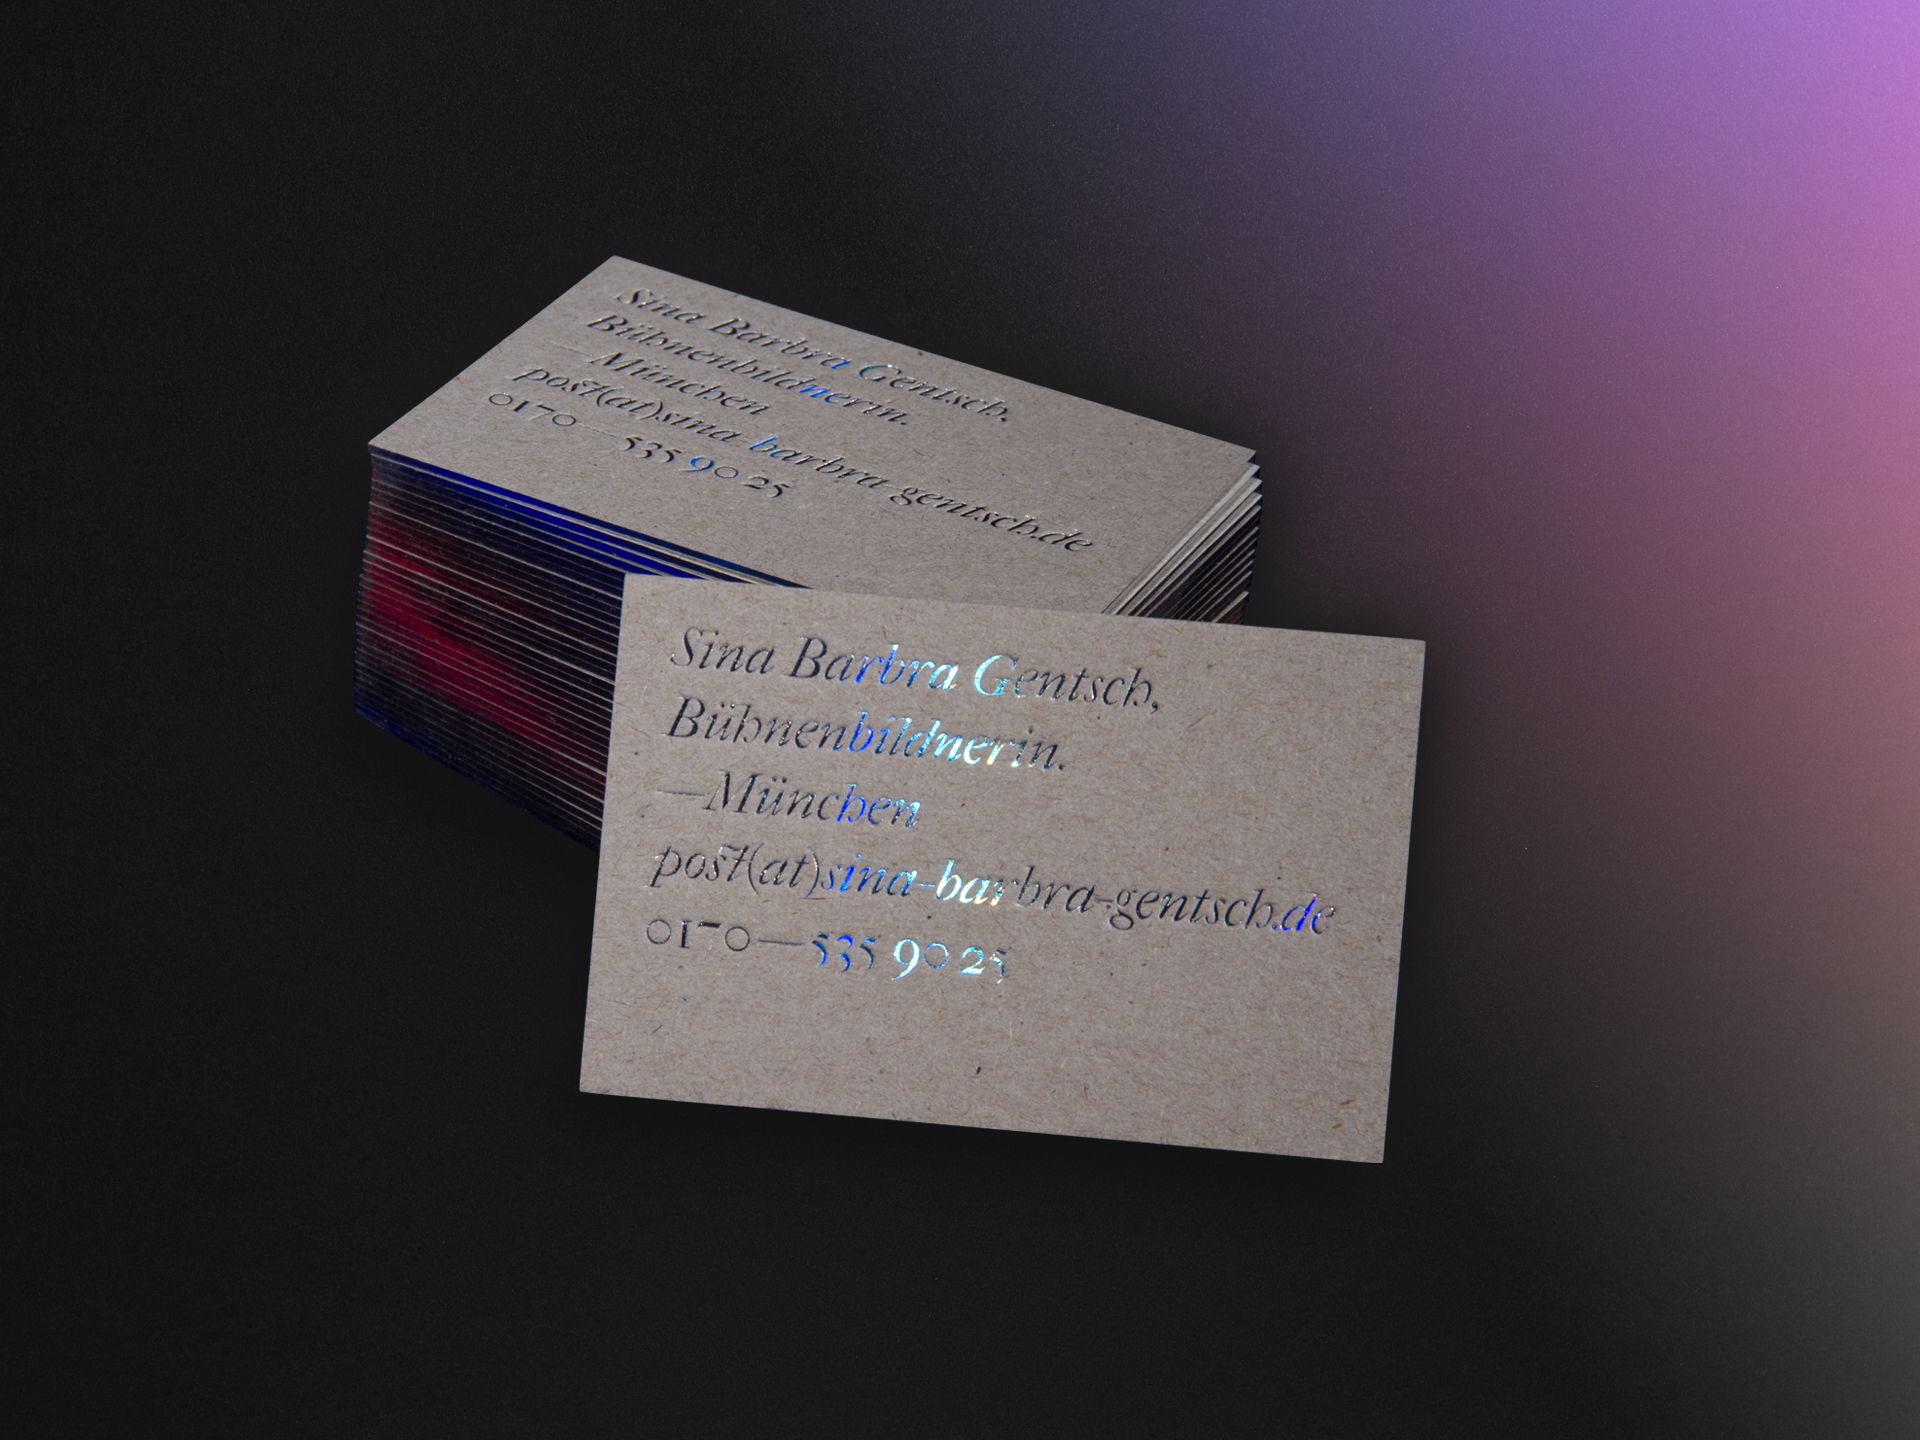 Sina Barbra Gentsch,
Bühnenbildnerin.
—München
post(at)sina-barbra-gentsch.de
0170—535 90 25
Sina Barbra Gentsch,
Bühnenbildnerin.
—München
post(at)sina-barbra-gentsch.de
0170—535 90 25